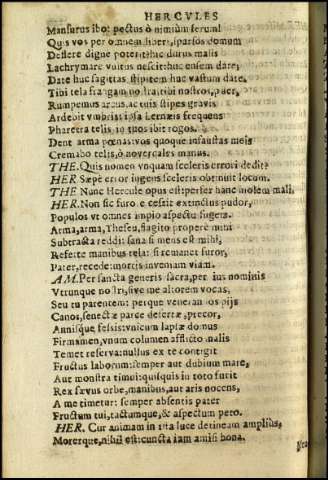 HERCVLES
Mansurus ibo: pectus ô nimium ferum!
Quis vos per omnem liberi, sparsos domum
Deflere digne poterit: hic durus malis
Lachrymare vultus nescit: huc ensem date;
Date huc sagittas, stipitem huc vastum date.
Tibi tela frangam nostra: tibi nostros, puer,
Rumpemus arcus, ac tuis stipes gravis
Ardebit vmbris: ipsa Lernæis frequens
Pharetra telis in tuos ibit rogos.
Dent arma pœnas: vos quoque infaustas meis
Cremabo telis, ô novercales manus.
THE. Quis nomen vnquam sceleris errori dedit?
HER. Sæpe error ingens sceleris obtinuit locum.
THE. Nunc Hercule opus est: perfer hanc molem mali.
HER. Non sic furore cessit extinctus pudor,
Populos vt omnes impio aspectu fugem.
Arma, arma, Theseu, flagito propere mihi
Subtracta reddi: sana si mens est mihi,
Referte manibus tela: si remanet furor,
Pater, recede: mortis inveniam viam.
AM. Per sancta generis sacra, per ius nominis
Vtrunque nostri, sive me altorem vocas,
Seu tu parentem: perque venerandos pijs
Canos, senectæ parce desertæ, precor,
Annisque fessis: vnicum lapsæ domus
Firmamen, vnum columen afflicto malis
Temet reserva: nullus ex te contigit
Fructus laborum: semper aut dubium mare,
Aut monstra timui: quisquis in toto furit
Rex sævus orbe, manibus, aut aris nocens,
A me timetur: semper absentis pater
Fructum tui, tactumque, & aspectum peto.
HER. Cur animam in ista luce detineam amplius,
Morerque, nihil est: cuncta iam amisi bona.